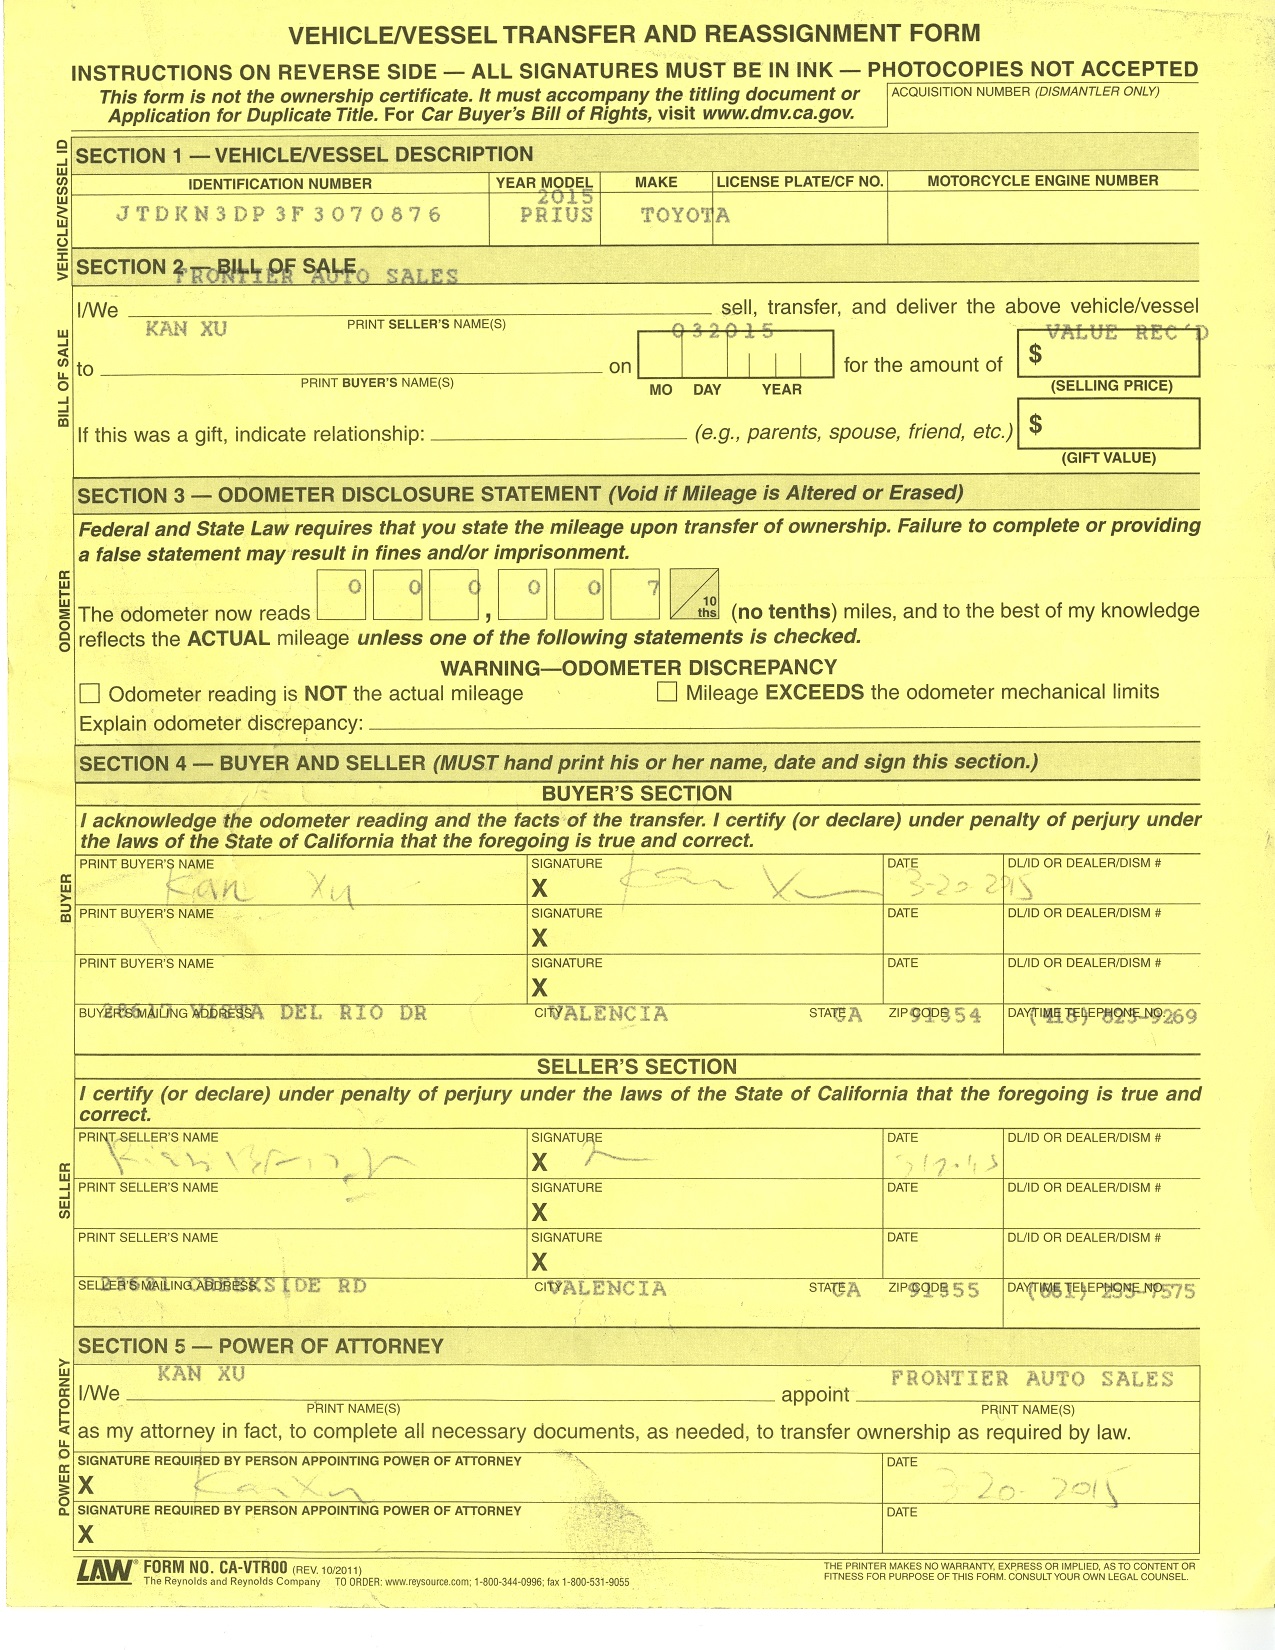 VEHICLE/VESSEL TRANSFER AND REASSIGNMENT FORM
INSTRUCTIONS ON REVERSE SIDE — ALL SIGNATURES MUST BE IN INK — PHOTOCOPIES NOT ACCEPTED
This form is not the ownership certificate. It must accompany the titling document or
Application for Duplicate Title. For Car Buyer's Bill of Rights, visit www.dmv.ca.gov.
ACQUISITION NUMBER (DISMANTLER ONLY)
VEHICLE/VESSEL ID
SECTION 1 — VEHICLE/VESSEL DESCRIPTION
IDENTIFICATION NUMBER YEAR MODEL MAKE LICENSE PLATE/CF NO. MOTORCYCLE ENGINE NUMBER
2015
JTDKN3DP3F3070876 PRIUS TOYOTA
BILL OF SALE
SECTION 2 — BILL OF SALE
FRONTIER AUTO SALES
I/We sell, transfer, and deliver the above vehicle/vessel
PRINT SELLER'S NAME(S)
KAN XU 032015 VALUE REC'D
to on for the amount of $
PRINT BUYER'S NAME(S) MO DAY YEAR (SELLING PRICE)
If this was a gift, indicate relationship: (e.g., parents, spouse, friend, etc.) $
(GIFT VALUE)
ODOMETER
SECTION 3 — ODOMETER DISCLOSURE STATEMENT (Void if Mileage is Altered or Erased)
Federal and State Law requires that you state the mileage upon transfer of ownership. Failure to complete or providing
a false statement may result in fines and/or imprisonment.
The odometer now reads 0 0 0 , 0 0 7 10 ths (no tenths) miles, and to the best of my knowledge
reflects the ACTUAL mileage unless one of the following statements is checked.
WARNING—ODOMETER DISCREPANCY
Odometer reading is NOT the actual mileage Mileage EXCEEDS the odometer mechanical limits
Explain odometer discrepancy:
SECTION 4 — BUYER AND SELLER (MUST hand print his or her name, date and sign this section.)
BUYER'S SECTION
I acknowledge the odometer reading and the facts of the transfer. I certify (or declare) under penalty of perjury under
the laws of the State of California that the foregoing is true and correct.
BUYER
PRINT BUYER'S NAME SIGNATURE DATE DL/ID OR DEALER/DISM #
Kan Xu X Kan Xu 3-20 2015
PRINT BUYER'S NAME SIGNATURE DATE DL/ID OR DEALER/DISM #
X
PRINT BUYER'S NAME SIGNATURE DATE DL/ID OR DEALER/DISM #
X
BUYER'S MAILING ADDRESS CITY STATE ZIP CODE DAYTIME TELEPHONE NO.
VISTA DEL RIO DR VALENCIA CA 91354
SELLER'S SECTION
I certify (or declare) under penalty of perjury under the laws of the State of California that the foregoing is true and
correct.
SELLER
PRINT SELLER'S NAME SIGNATURE DATE DL/ID OR DEALER/DISM #
X
PRINT SELLER'S NAME SIGNATURE DATE DL/ID OR DEALER/DISM #
X
PRINT SELLER'S NAME SIGNATURE DATE DL/ID OR DEALER/DISM #
X
SELLER'S MAILING ADDRESS CITY STATE ZIP CODE DAYTIME TELEPHONE NO.
CREEKSIDE RD VALENCIA CA 91355
POWER OF ATTORNEY
SECTION 5 — POWER OF ATTORNEY
KAN XU FRONTIER AUTO SALES
I/We appoint
PRINT NAME(S) PRINT NAME(S)
as my attorney in fact, to complete all necessary documents, as needed, to transfer ownership as required by law.
SIGNATURE REQUIRED BY PERSON APPOINTING POWER OF ATTORNEY DATE
X Kan Xu 3-20-2015
SIGNATURE REQUIRED BY PERSON APPOINTING POWER OF ATTORNEY DATE
X
LAW FORM NO. CA-VTR00 (REV. 10/2011)
The Reynolds and Reynolds Company TO ORDER: www.reysource.com; 1-800-344-0996; fax 1-800-531-9055
THE PRINTER MAKES NO WARRANTY, EXPRESS OR IMPLIED, AS TO CONTENT OR
FITNESS FOR PURPOSE OF THIS FORM. CONSULT YOUR OWN LEGAL COUNSEL.